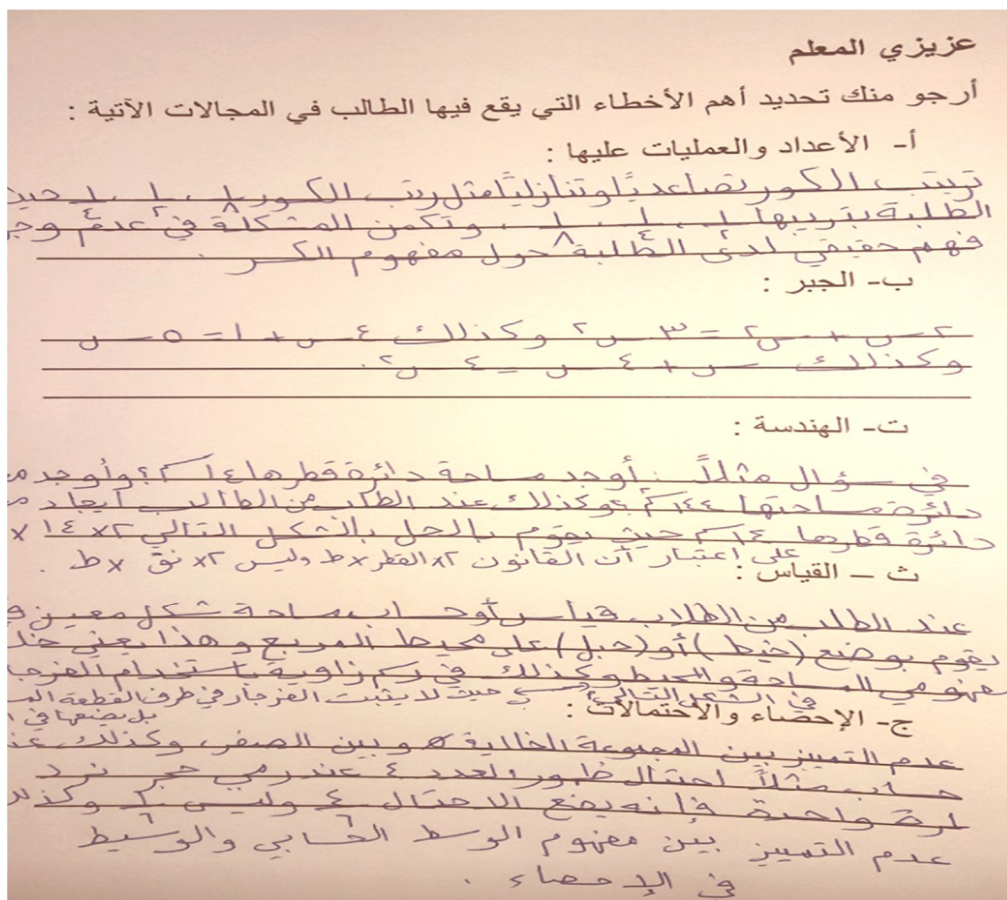 عزيزي المعلم
أرجو منك تحديد أهم الأخطاء التي يقع فيها الطالب في المجالات الآتية :
أ- الأعداد والعمليات عليها :
ترتيب الكسور تصاعدياً وتنازلياً مثل رتب الكسور ١/٨ ، ١/٢ ، ١/٤ حيث
الطلبة بترتيبها ١/٢ ، ١/٤ ، ١/٨ ، وتكمن المشكلة في عدم
فهم حقيقي لدى الطلبة حول مفهوم الكسر .
ب- الجبر :
٢س + س٢ = ٣س٢ وكذلك ٤س + ١ = ٥س
وكذلك س + ٤س = ٤س٢ .
ت- الهندسة :
في سؤال مثلاً : أوجد مساحة دائرة قطرها ١٤سم ؟ وأوجد
دائرة مساحتها ١٤٤سم٢ ؟ وكذلك عند الطلب من الطالب ايجاد
دائرة قطرها ١٤سم حيث يقوم بالحل بالشكل التالي ٢×١٤×
على اعتبار أن القانون ٢×القطر×ط وليس ٢×نق×ط .
ث – القياس :
عند الطلب من الطلاب قياس أو حساب مساحة شكل معين
يقوم بوضع (خيط) أو (حبل) على محيط المربع وهذا يعني
مفهومي المساحة والمحيط وكذلك في رسم زاوية باستخدام الفرجار
في الشكل التالي حيث لا يثبت الفرجار في طرف القطعة
بل يضعها في
ج- الإحصاء والاحتمالات :
عدم التمييز بين المجموعة الخالية ø وبين الصفر، وكذلك
حساب مثلاً احتمال ظهور العدد ٤ عند رمي حجر نرد
لمرة واحدة فإنه يضع الاحتمال ٤/٦ وليس ١/٦
عدم التمييز بين مفهوم الوسط الحسابي والوسيط
في الإحصاء .